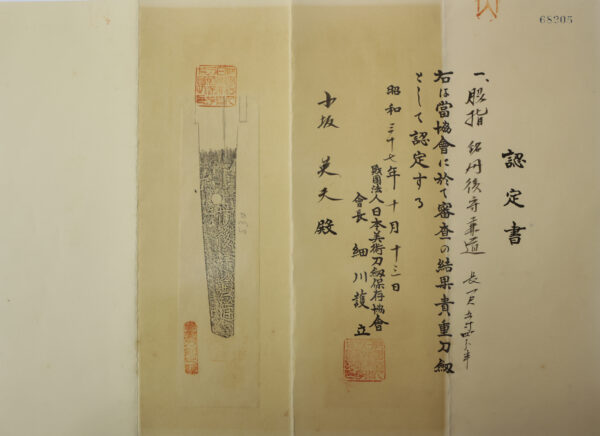 68205
認定書
一、脇指 銘 丹後守兼道 長一尺五寸四分半
右は當協會に於て審査の結果貴重刀劔
として認定する
昭和三十七年十月十三日
財團法人日本美術刀劔保存協會
會長 細川護立
小坂英夫殿